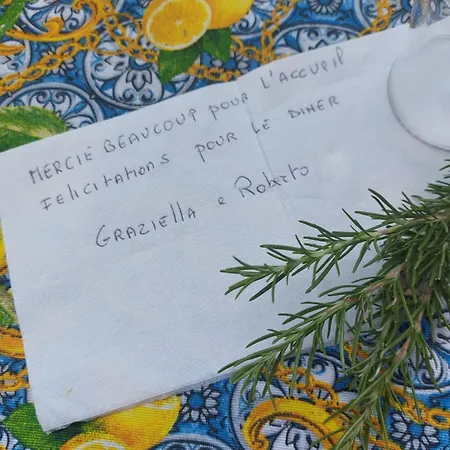 MERCIE BEAUCOUP POUR L'ACCUEIL
FELICITATIONS POUR LE DINER
GRAZIELLA e ROBERTO